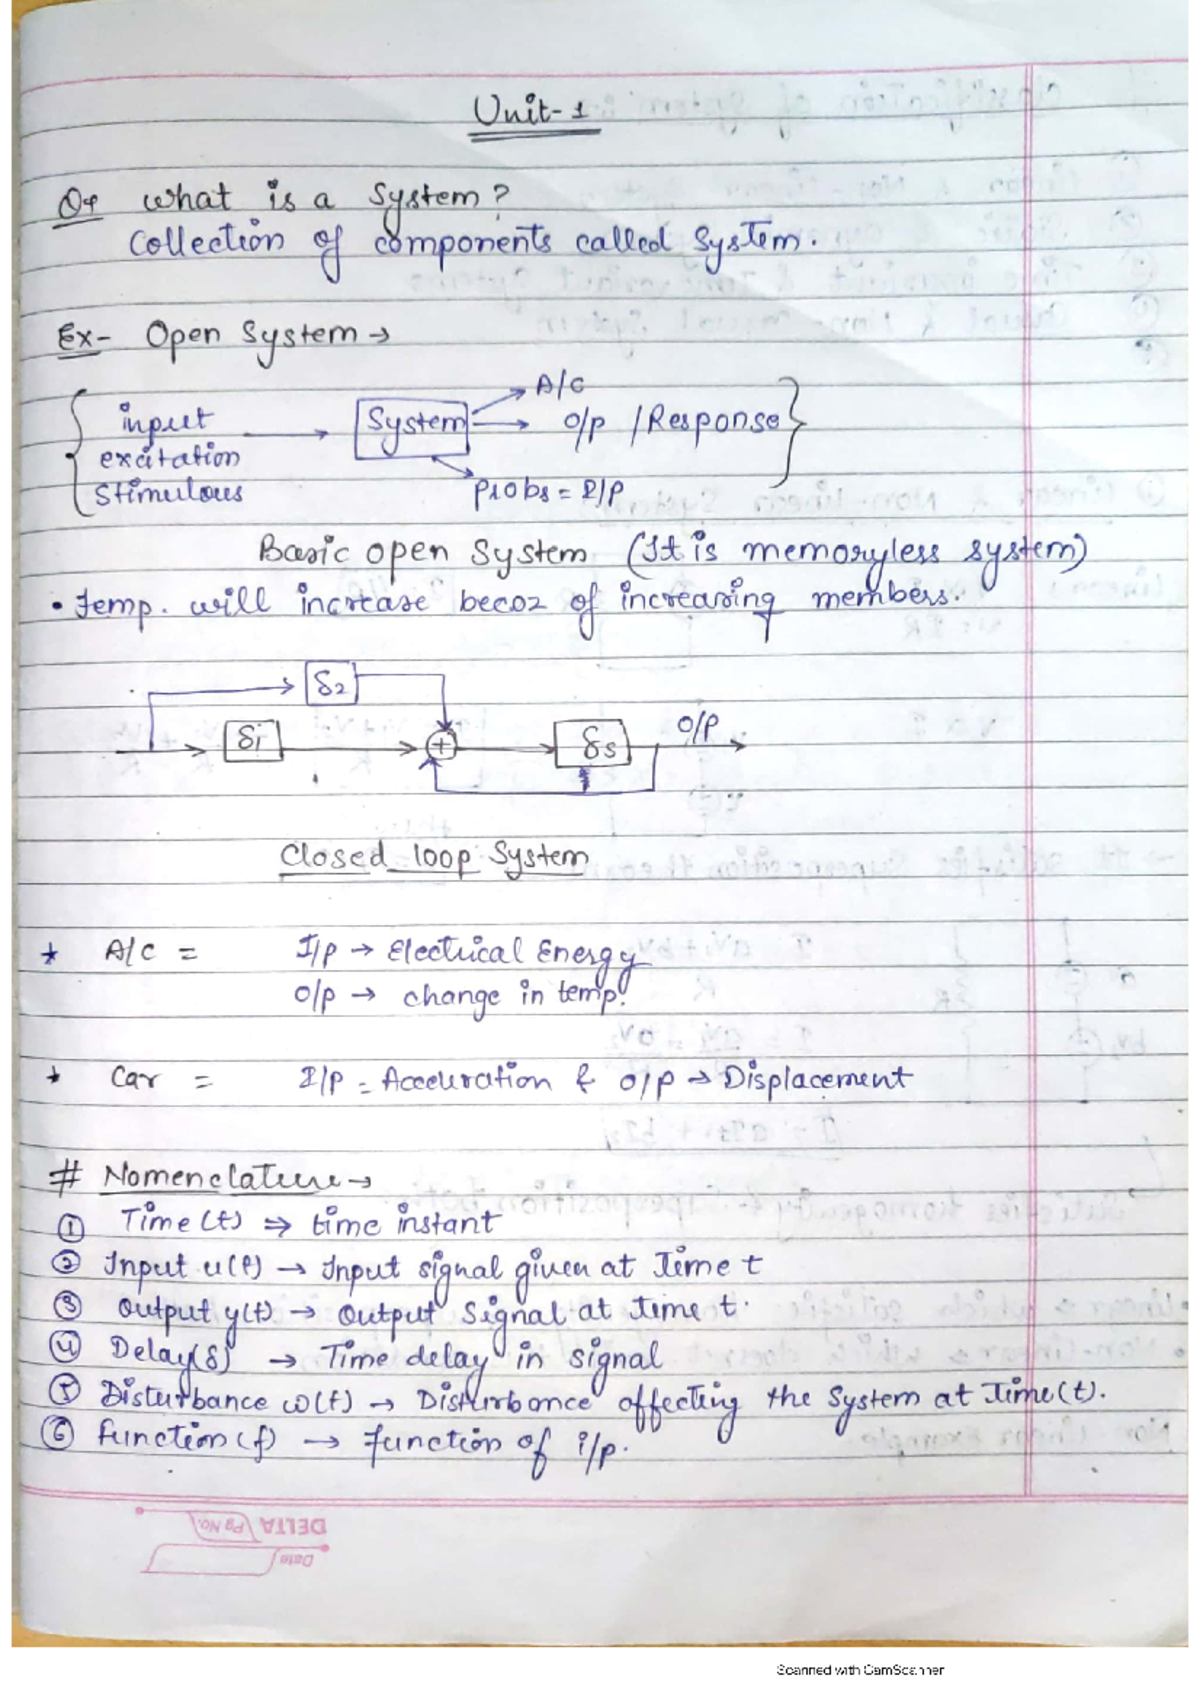 Unit-1
Q1 What is a System?
Collection of components called System.
Ex- Open System →
A/C
input → System → O/P / Response
excitation
Stimulous
Probs = I/P
Basic open System (It is memoryless system)
• Temp. will increase becoz of increasing members.
δ2
δ1 + δs O/P
Closed loop System
* A/C = I/P → Electrical Energy
O/P → change in temp.
* Car = I/P = Acceluration & O/P → Displacement
# Nomenclature →
① Time (t) ⇒ time instant
② Input u(t) → Input signal given at Time t
③ Output y(t) → Output Signal at Time t.
④ Delay(δ) → Time delay in signal
⑤ Disturbance ω(t) → Disturbance affecting the System at Time(t).
⑥ function (f) → function of i/p.
DELTA Pg No.
Date
Scanned with CamScanner